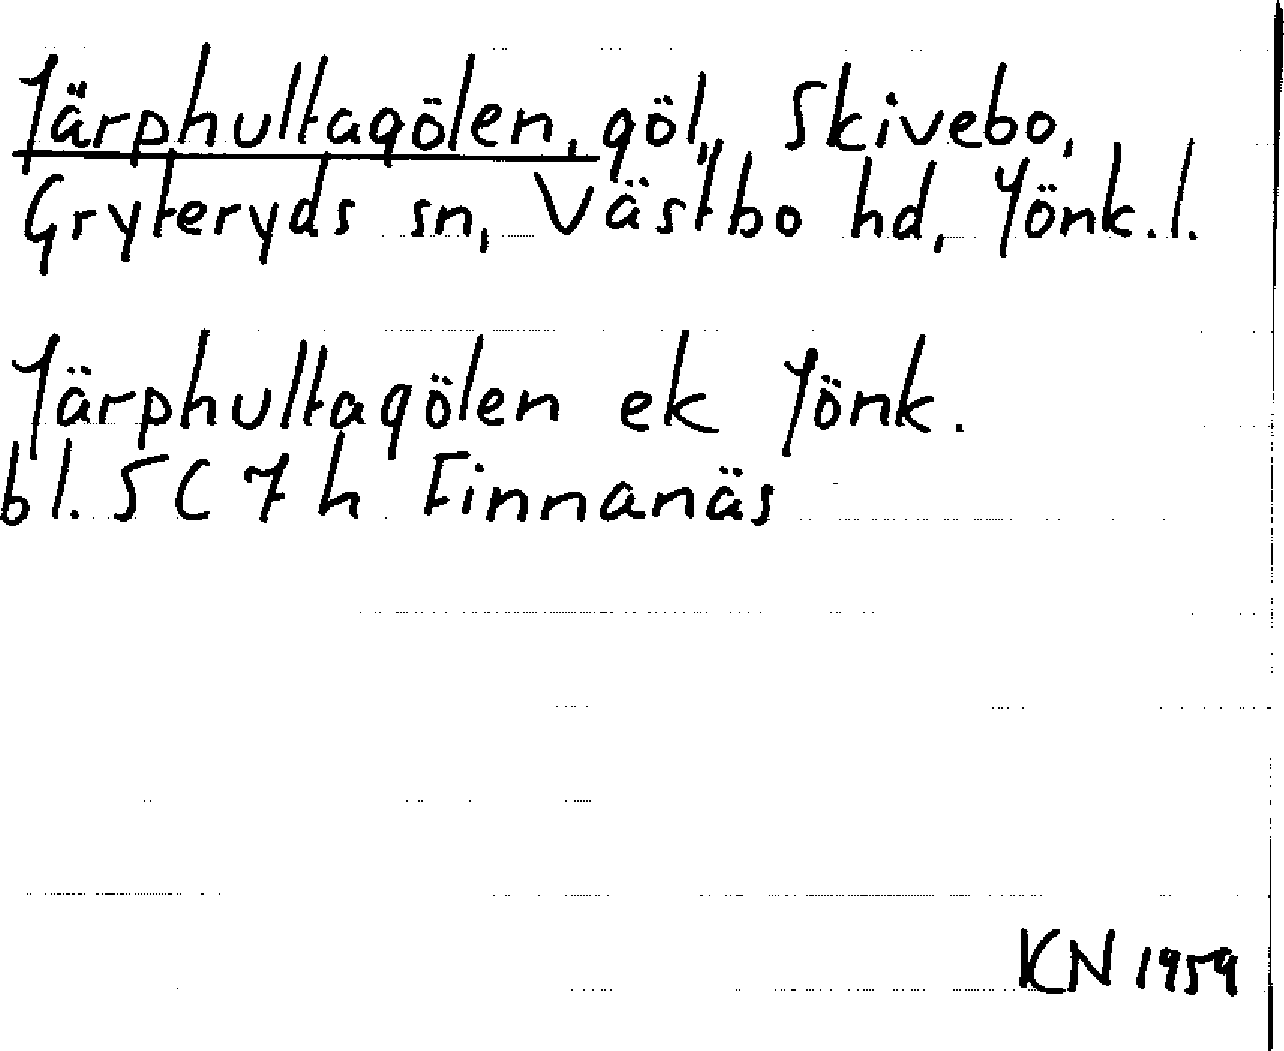 Järphultagölen, göl, Skivebo,
Gryteryds sn, Västbo hd, Jönk.l.
Järphultagölen ek Jönk.
bl. 5C 7h Finnanäs
KN 1959